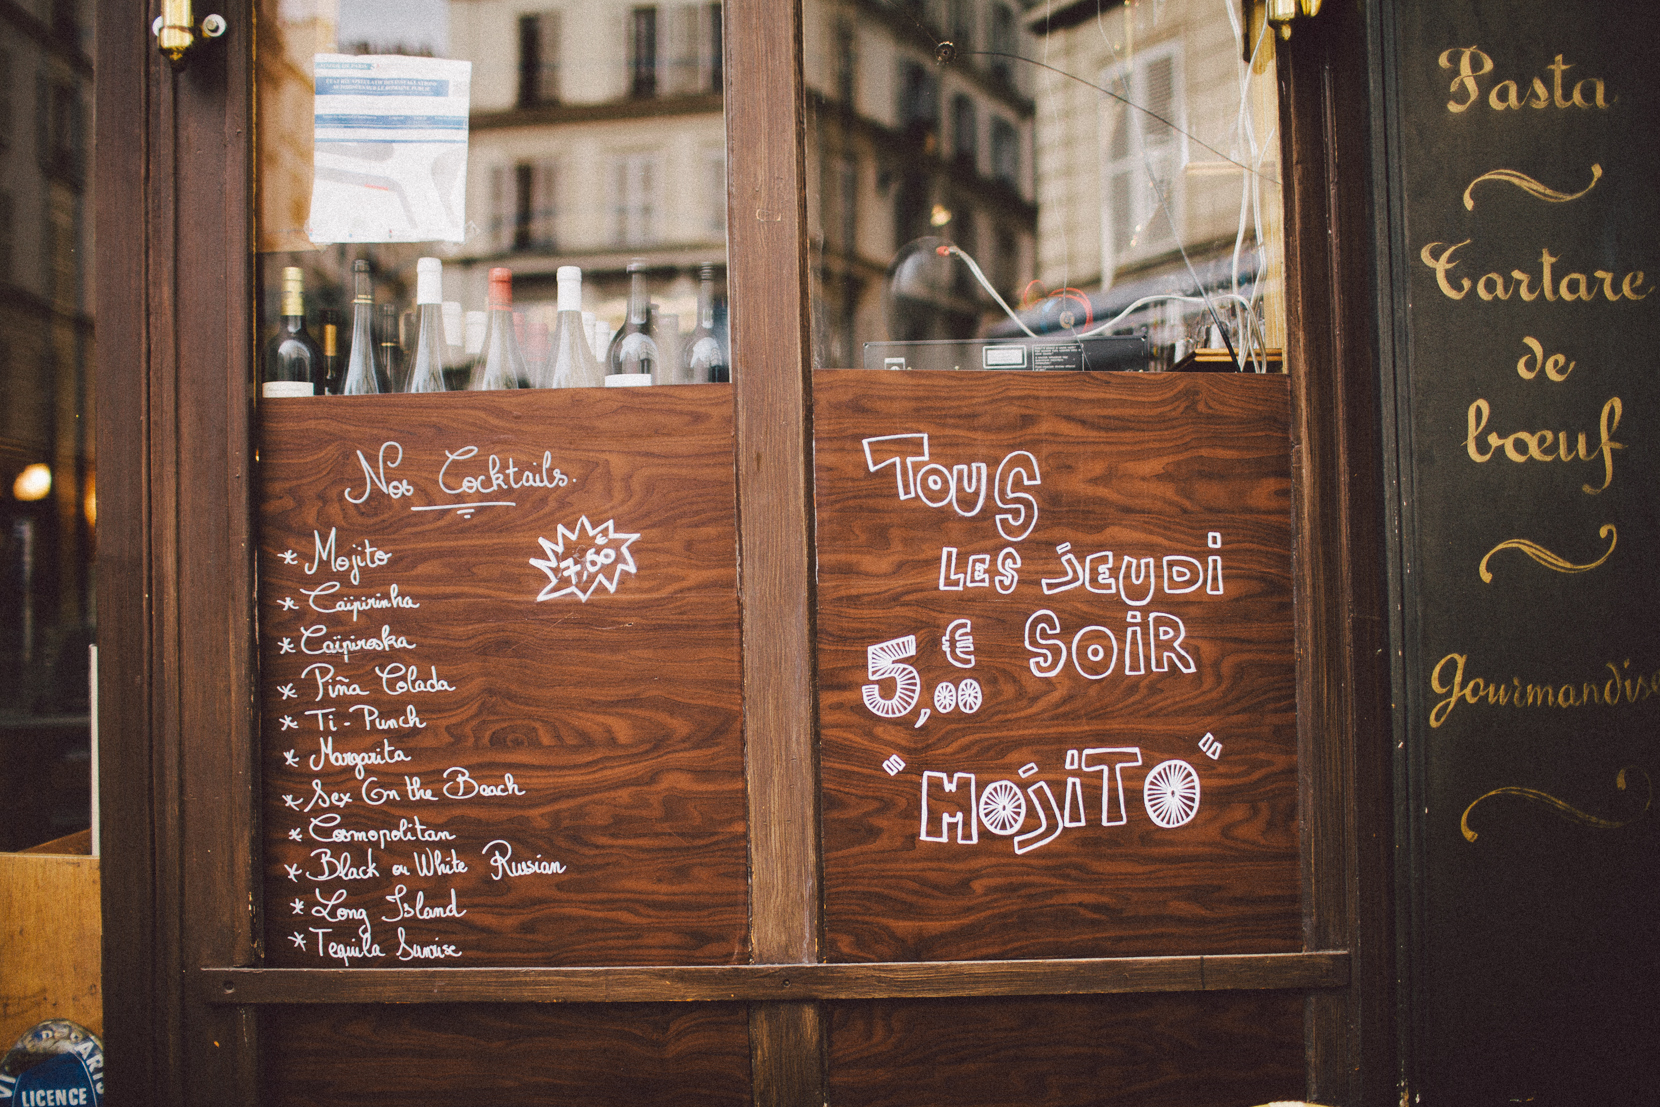 Nos Cocktails.
* Mojito
7,60 €
* Caïpirinha
* Caïpiroska
* Piña Colada
* Ti-Punch
* Margarita
* Sex On the Beach
* Cosmopolitan
* Black ou White Russian
* Long Island
* Tequila Sunrise
TOUS
LES JEUDI
SOIR
5,00 €
"MOJITO"
Pasta
Tartare
de
bœuf
Gourmandise
LICENCE